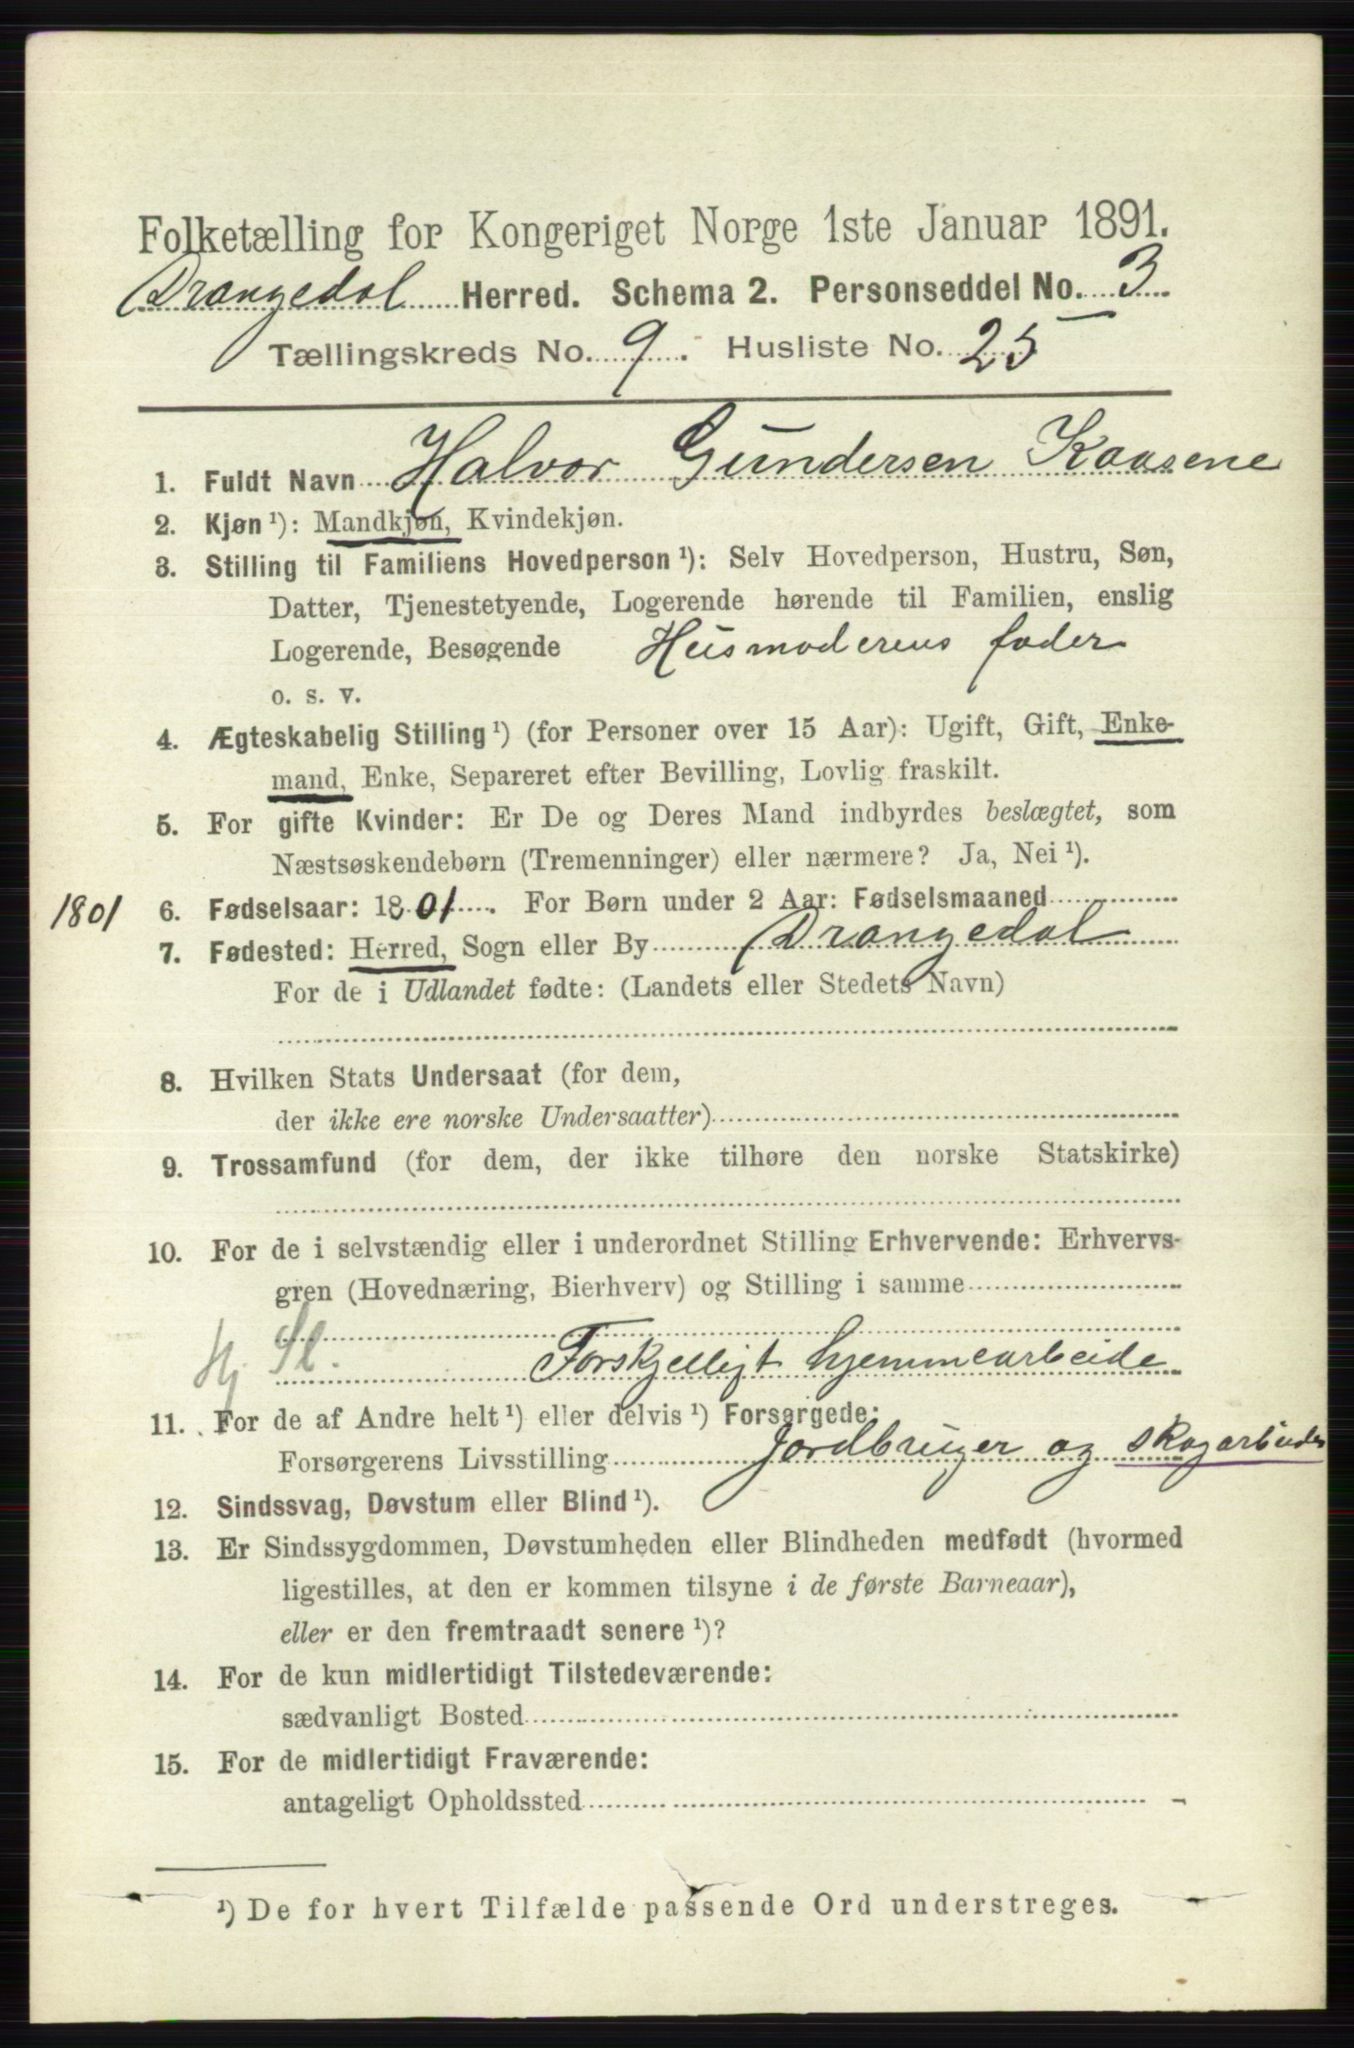 Folketælling for Kongeriget Norge 1ste Januar 1891.
Drangedal Herred. Schema 2. Personseddel No. 3
Tællingskreds No. 9. Husliste No. 25
1. Fuldt Navn Halvor Gundersen Kaasene
2. Kjøn ¹): Mandkjøn, Kvindekjøn.
3. Stilling til Familiens Hovedperson ¹): Selv Hovedperson, Hustru, Søn,
Datter, Tjenestetyende, Logerende hørende til Familien, enslig
Logerende, Besøgende Husmoderens fader
o. s. v.
4. Ægteskabelig Stilling ¹) (for Personer over 15 Aar): Ugift, Gift, Enke-
mand, Enke, Separeret efter Bevilling, Lovlig fraskilt.
5. For gifte Kvinder: Er De og Deres Mand indbyrdes beslægtet, som
Næstsøskendebørn (Tremenninger) eller nærmere? Ja, Nei ¹).
1801 6. Fødselsaar: 1801. For Børn under 2 Aar: Fødselsmaaned
7. Fødested: Herred, Sogn eller By Drangedal
For de i Udlandet fødte: (Landets eller Stedets Navn)
8. Hvilken Stats Undersaat (for dem,
der ikke ere norske Undersaatter)
9. Trossamfund (for dem, der ikke tilhøre den norske Statskirke)
10. For de i selvstændig eller i underordnet Stilling Erhvervende: Erhvervs-
gren (Hovednæring, Bierhverv) og Stilling i samme
Hj. Sl. Forskjelligt hjemmearbeide
11. For de af Andre helt ¹) eller delvis ¹) Forsørgede:
Forsørgerens Livsstilling Jordbruger og skogarbeider
12. Sindssvag, Døvstum eller Blind ¹).
13. Er Sindssygdommen, Døvstumheden eller Blindheden medfødt (hvormed
ligestilles, at den er kommen tilsyne i de første Barneaar),
eller er den fremtraadt senere ¹)?
14. For de kun midlertidigt Tilstedeværende:
sædvanligt Bosted
15. For de midlertidigt Fraværende:
antageligt Opholdssted
¹) De for hvert Tilfælde passende Ord understreges.